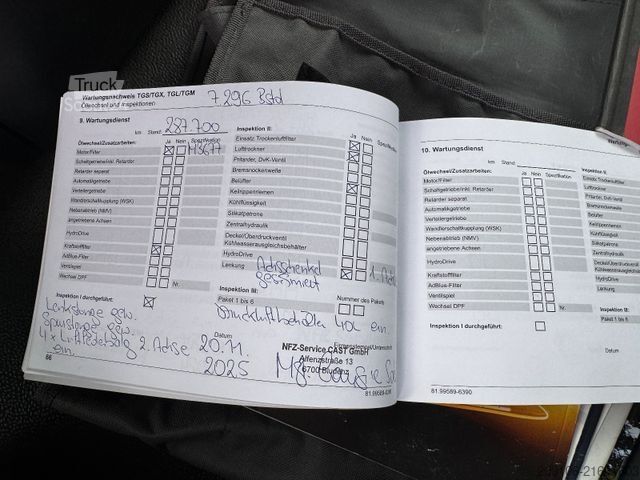 Truck
Wartungsnachweis TGS/TGX, TGL/TGM
Ölwechsel und Inspektionen
7.296 Bstd
9. Wartungsdienst
km Stand: 287.700
Ölwechsel/Zusatzarbeiten:
Ja Nein Spezifikation
Motor/Filter M3677
Schaltgetriebe/inkl. Retarder
Retarder separat
Automatikgetriebe
Verteilergetriebe
Wandlerschaltkupplung (WSK)
Nebenabtrieb (NMV)
angetriebene Achsen
HydroDrive
Kraftstofffilter
AdBlue-Filter
Ventilspiel
Wechsel DPF Nr.
Inspektion I durchgeführt:
Spurstange gew.
4x Luftfederbalg 2. Achse
ein.
86
Inspektion II:
Ja Nein
Einsatz Trockenluftfilter
Lufttrockner
Pritarder, DvK-Ventil
Bremsnockenwelle
Belüfter
Keilrippenriemen
Kühlflüssigkeit
Silikatpatrone
Zentralhydraulik
Deckel/Überdruckventil
Kühlwasserausgleichsbehälter
HydroDrive
Lenkung Achsschenkel 1. Achse
Inspektion III:
Paket 1 bis 6
Nummer des Pakets
Druckluftbehälter 40L ein.
Datum
20.11.
2025
Firmenstempel/Unterschrift
NFZ-Service CAST GmbH
Alfenzstraße 13
6700 Bludenz
81.99589-6390
10. Wartungsdienst
km Stand:
Ölwechsel/Zusatzarbeiten:
Ja Nein Spezifikation
Motor/Filter
Schaltgetriebe/inkl. Retarder
Retarder separat
Automatikgetriebe
Verteilergetriebe
Wandlerschaltkupplung (WSK)
Nebenabtrieb (NMV)
angetriebene Achsen
HydroDrive
Kraftstofffilter
AdBlue-Filter
Ventilspiel
Wechsel DPF Nr.
Inspektion I durchgeführt:
Inspektion II:
Einsatz Trockenluftfilter
Lufttrockner
Pritarder, DvK-Ventil
Bremsnockenwelle
Belüfter
Keilrippenriemen
Kühlflüssigkeit
Silikatpatrone
Zentralhydraulik
HydroDrive
Lenkung
Inspektion III:
Paket 1 bis 6
Datum
81.99589-6390